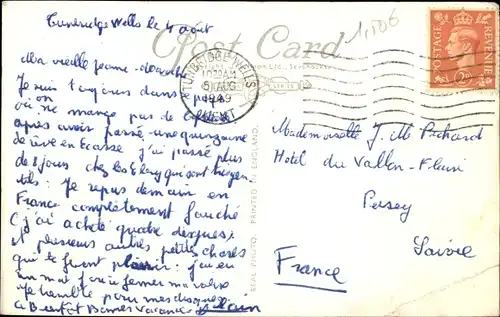 Tunbridge Wells le 4 août
Ma vieille Jeanne-Marthe
Je suis toujours dans
où on ne mange pas de
après avoir passé une quinzaine
de rêve en Ecosse j'ai passé plus
de 8 jours chez les qui sont
Je repars demain en
France complètement fauché
(j'ai acheté quatre disques
et plusieurs autres petites choses
qui te feront plaisir: j'ai eu
un mal fou à fermer ma valise
Je tremble pour mes disques
A Bientôt Bonnes Vacances Alain
Post Card
1,50
TUNBRIDGE WELLS
10 AM
5 AUG
1949
KENT
POSTAGE
REVENUE
2D
REAL PHOTO. PRINTED IN ENGLAND.
Mademoiselle J. M. Pichard
Hotel du Vallon-Fleuri
Peisey
Savoie
France